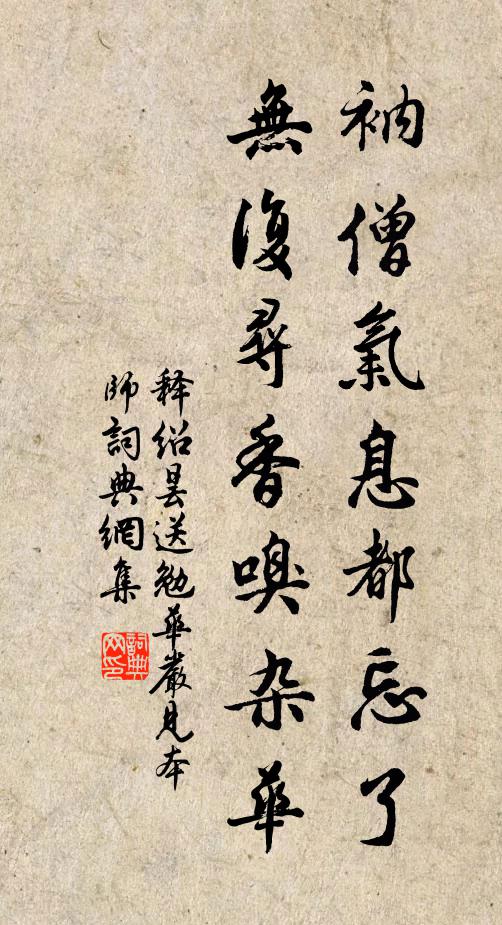 衲僧氣息都忘了
無復尋香嗅杂華
释绍曇送勉華嚴見本
師詞典網集
詞典
网印